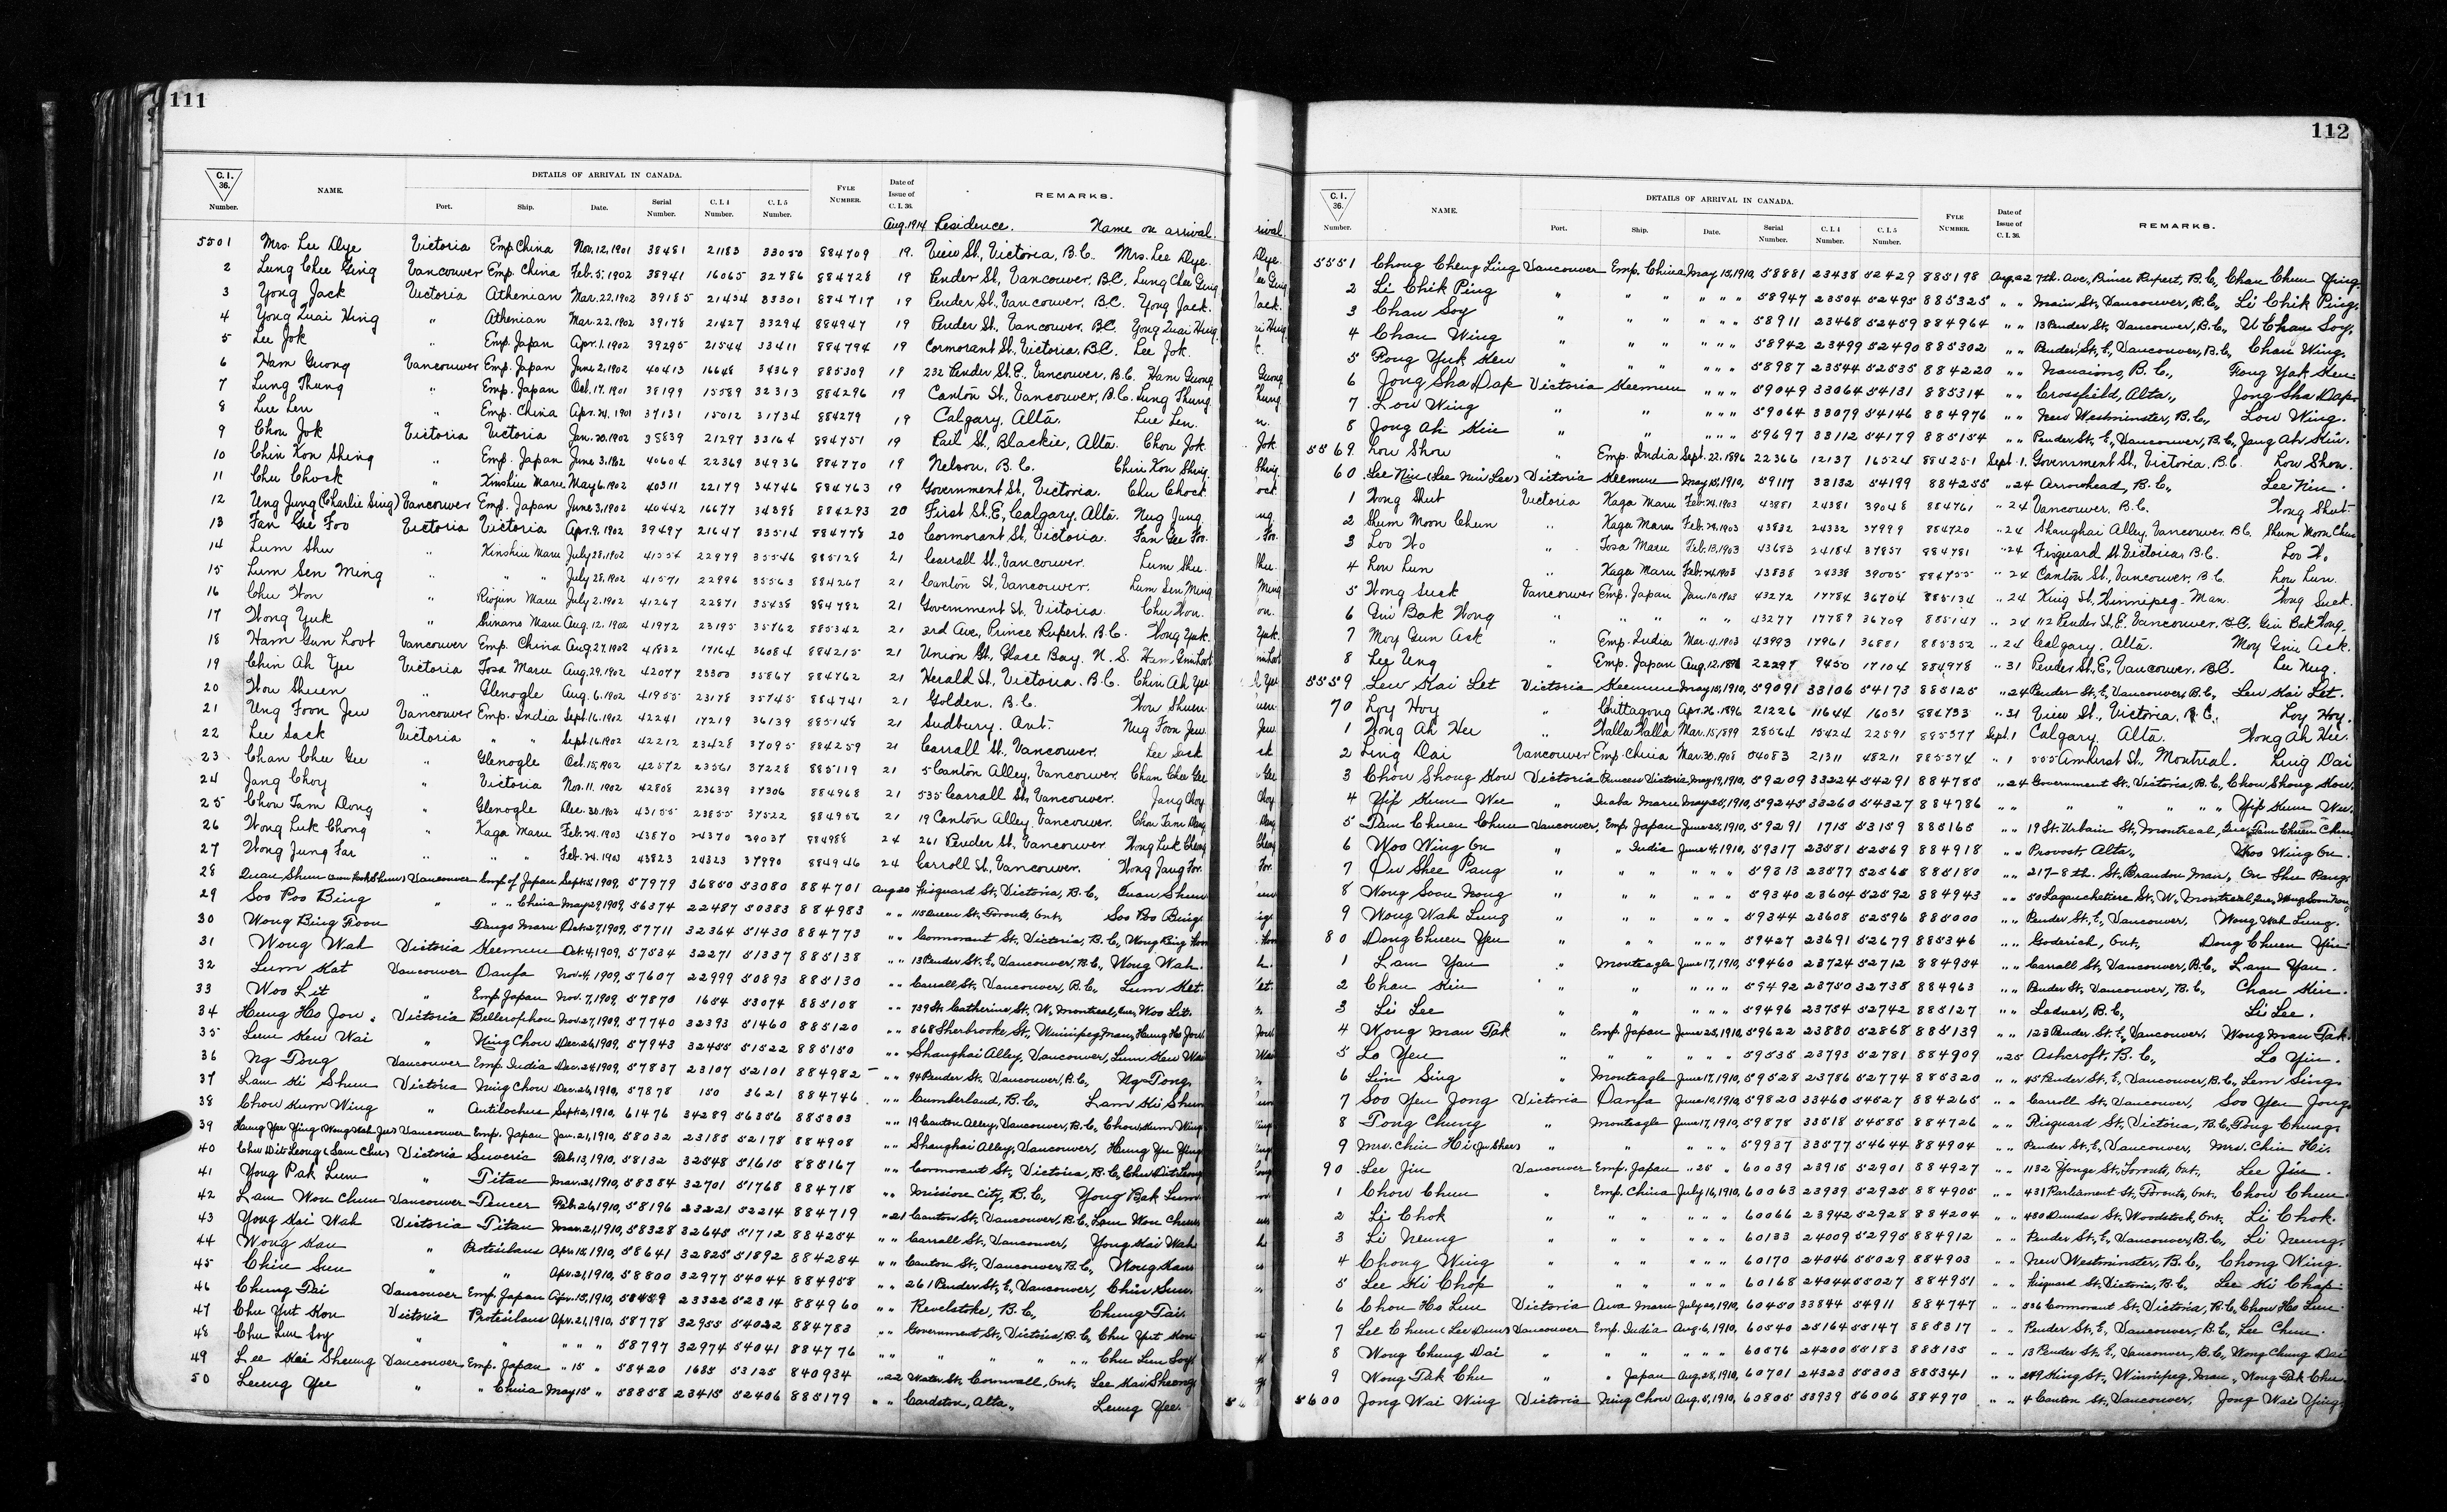 111
C. I. 36. Number. NAME. DETAILS OF ARRIVAL IN CANADA. Port. Ship. Date. Serial Number. C. I. 4 Number. C. I. 5 Number. FYLE NUMBER. Date of Issue of C. I. 36. REMARKS.
Aug. 1914 Residence. Name on arrival.
5501 Mrs. Lee Dye Victoria Emp China Nov. 12, 1901 38481 21183 33050 884709 19. View St, Victoria, B.C. Mrs. Lee Dye.
2 Lung Chee Ging Vancouver Emp. China Feb. 5, 1902 38941 16065 32786 884728 19 Pender St, Vancouver, BC. Lung Chee Ging
3 Yong Jack Victoria Athenian Mar. 22, 1902 39185 21434 33301 884717 19 Pender St, Vancouver, BC. Yong Jack.
4 Yong Quai Hing " Athenian Mar. 22, 1902 39178 21427 33294 884947 19 Pender St, Vancouver, BC. Yong Quai Hing
5 Lee Jok " Emp. Japan Apr. 1, 1902 39295 21544 33411 884794 19 Cormorant St, Victoria, B.C. Lee Jok.
6 Ham Guong Vancouver Emp. Japan June 2, 1902 40413 16648 34369 885309 19 232 Pender St. E., Vancouver, B.C. Ham Guong
7 Lung Thung " Emp. Japan Oct. 17, 1901 38199 15589 32313 884296 19 Canton St, Vancouver, B.C. Lung Thung
8 Lue Len " Emp. China Apr. 24, 1901 37131 15012 31734 884279 19 Calgary, Alta. Lue Len.
9 Chou Jok Victoria Victoria Jan. 20, 1902 38839 21297 33164 884751 19 Rail St, Blackie, Alta. Chou Jok.
10 Chin Kon Shing " Emp. Japan June 3, 1902 40604 22369 34936 884770 19 Nelson, B.C. Chin Kon Shing
11 Chu Chock " Kinshiu Maru May 6, 1902 40311 22179 34746 884763 19 Government St, Victoria. Chu Chock
12 Ung Jung (Charlie Sing) Vancouver Emp. Japan June 3, 1902 40442 16677 34398 884293 20 First St. E, Calgary, Alta. Nug Jung
13 Fan Gee Foo Victoria Victoria Apr. 9, 1902 39497 21647 33514 884778 20 Cormorant St, Victoria. Fan Gee Foo.
14 Lum Shu " Kinshiu Maru July 28, 1902 41554 22979 35546 885128 21 Carrall St., Vancouver. Lum Shu.
15 Lum Sen Ming " " " July 28, 1902 41571 22996 35563 884267 21 Canton St, Vancouver. Lum Sen Ming
16 Chu Won " Riojun Maru July 2, 1902 41267 22871 35438 884782 21 Government St, Victoria. Chu Won.
17 Wong Yuk " Shinano Maru Aug. 12, 1902 41972 23195 35762 885342 21 3rd Ave, Prince Rupert, B.C. Wong Yuk.
18 Ham Gun Loot Vancouver Emp. China Aug. 27, 1902 41832 17164 36084 884215 21 Union St, Glace Bay, N.S. Ham Gun Loot
19 Chin Ah Yu Victoria Tosa Maru Aug. 29, 1902 42077 23300 35867 884762 21 Herald St, Victoria, B.C. Chin Ah Yu
20 Wou Shuen " Glenogle Aug. 6, 1902 41955 23178 35745 884741 21 Golden, B.C. Wou Shuen.
21 Ung Foon Jew Vancouver Emp. India Sept. 16, 1902 42241 17219 36139 885148 21 Sudbury, Ont. Nug Foon Jew.
22 Lee Sack Victoria " " Sept. 16, 1902 42212 23428 37095 884259 21 Carrall St, Vancouver. Lee Sack
23 Chan Chee Gee " Glenogle Oct. 15, 1902 42572 23561 37228 885119 21 5 Canton Alley, Vancouver. Chan Chee Gee
24 Jang Choy " Victoria Nov. 11, 1902 42808 23639 37306 884968 21 535 Carrall St, Vancouver. Jang Choy
25 Chou Tam Dong " Glenogle Dec. 30, 1902 43155 23855 37522 884956 21 19 Canton Alley, Vancouver. Chou Tam Dong
26 Wong Luk Chong " Kaga Maru Feb. 24, 1903 43870 24370 39037 884988 24 261 Pender St, Vancouver Wong Luk Chong
27 Wong Jung Far " " " Feb. 24, 1903 43823 24323 37990 884946 24 Carroll St, Vancouver. Wong Jung For.
28 Quan Shum Vancouver Emp of Japan Sept. 5, 1909, 57979 36850 53080 884701 Aug 20 Fisguard St, Victoria, B.C., Quan Shum
29 Soo Poo Bing " " China May 29, 1909, 56374 22487 50383 884983 " " 115 Queen St, Toronto, Ont, Soo Poo Bing.
30 Wong Bing Foon Tango Maru Oct. 27, 1909, 57711 32364 51430 884773 " " Cormorant St, Victoria, B.C., Wong Bing Foon
31 Wong Wah Victoria Keemun Oct. 4, 1909, 57534 32271 51337 885138 " " 13 Pender St. E, Vancouver, B.C., Wong Wah.
32 Lum Kat Vancouver Oanfa Nov. 4, 1909, 57607 22999 50893 885130 " " Carrall St, Vancouver, B.C., Lum Kat.
33 Woo Lit " Emp Japan Nov. 7, 1909, 57870 1654 53074 885108 " " 739 St. Catherine St, W. Montreal, Que, Woo Lit.
34 Hung Ho Jou. Victoria Bellerophon Nov. 27, 1909, 57740 32393 51460 885120 " " 868 Sherbrooke St, Winnipeg, Man, Hung Ho Jou.
35 Lum Keu Wai " Ning Chow Dec. 26, 1909, 57943 32455 51522 885150 " " Shanghai Alley, Vancouver, Lum Keu Wai
36 Ng Tong Vancouver Emp. India Dec. 24, 1909, 57837 23107 52101 884982 " " 94 Pender St. Vancouver, B.C., Ng Tong.
37 Lam Ki Shun Victoria Ning Chow Dec. 26, 1910, 57878 150 3621 884746 " " Cumberland, B.C., Lam Ki Shun
38 Chou Kum Wing " Antilochus Sept. 2, 1910, 61476 34289 56356 885303 " " 19 Canton Alley, Vancouver, B.C., Chou Kum Wing
39 Hung Yee Ying Vancouver Emp. Japan Jan. 21, 1910, 58032 23185 52178 884908 " " Shanghai Alley, Vancouver, Hung Yu Ying
40 Chu Dit Leong (Sam Chu) Victoria Suveric Feb. 13, 1910, 58132 32548 51615 885167 " " Cormorant St, Victoria, B.C, Chu Dit Leong
41 Yong Pak Lum " Titan Mar. 21, 1910, 58384 32701 51768 884718 " " Mission City, B.C., Yong Bak Lum
42 Lam Wou Chun Vancouver Teucer Feb. 26, 1910, 58196 23221 52214 884719 " 21 Canton St, Vancouver, B.C., Lam Wou Chun
43 Yong Kai Wah Victoria Titan Mar. 21, 1910, 58328 32645 51712 884254 " " Carrall St, Vancouver, Yong Kai Wah
44 Wong Kau " Protesilaus Apr. 15, 1910, 58641 32825 51892 884284 " " Canton St., Vancouver, B.C., Wong Kau
45 Chin Sun " " Apr. 21, 1910, 58800 32977 54044 884958 " " 261 Pender St, E, Vancouver, Chin Sun.
46 Chung Tai Vancouver Emp Japan Apr. 15, 1910, 58459 23322 52314 884960 " " Revelstoke, B.C., Chung Tai.
47 Chu Yut Kou Victoria Protesilaus Apr. 21, 1910, 58778 32955 54022 884783 " " Government St, Victoria, B.C, Chu Yut Kou
48 Chu Lun Soy " " " " " 58797 32974 54041 884776 " " " " " " Chu Lun Soy
49 Lee Kai Sheung Vancouver Emp. Japan " 15 " 58420 1685 53125 840934 " 22 Water St. Cornwall, Ont, Lee Kai Sheong
50 Leung Yee " " China May 15 " 58858 23415 52406 885179 " " Cardston, Alta., Leung Yee.
112
C. I. 36. Number. NAME. DETAILS OF ARRIVAL IN CANADA. Port. Ship. Date. Serial Number. C. I. 4 Number. C. I. 5 Number. FYLE NUMBER. Date of Issue of C. I. 36. REMARKS.
5551 Chong Cheng Ling Vancouver Emp. China May 15, 1910, 58881 23438 52429 885198 Aug. 22 7th. Ave, Prince Rupert, B.C, Chan Chun Ying.
2 Li Chik Ping " " " " " " 58947 23504 52495 885325 " " Main St., Vancouver, B.C., Li Chik Ping.
3 Chan Soy " " " " " " 58911 23468 52459 884964 " " 13 Pender St., Vancouver, B.C., U Chan Soy.
4 Chan Wing " " " " " " 58942 23499 52490 885302 " " Pender St, E, Vancouver, B.C, Chan Wing.
5 Fong Yuk Keu " " " " " " 58987 23544 52535 884220 " " Nanaimo, B.C., Fong Yak Keu.
6 Jong Sha Dap Victoria Keemun " " " 59049 33064 54131 885314 " " Crossfield, Alta., Jong Sha Dap.
7 Low Wing " " " " " 59064 33079 54146 884976 " " New Westminster, B.C., Low Wing.
8 Jong Ah Kin " " " " " 59697 33112 54179 885154 " " Pender St., E, Vancouver, B.C., Jang Ah Kin.
5569 Low Shou " Emp. India Sept. 22, 1896 22366 12137 16524 884251 Sept. 1. Government St, Victoria, B.C. Low Shou.
60 Lee Nin (Lee Nin Lee) Victoria Keemun May 15, 1910, 59117 33132 54199 884255 " 24 Arrowhead, B.C., Lee Nin.
1 Wong Shut Victoria Kaga Maru Feb. 24, 1903 43881 24381 39048 884761 " 24 Vancouver, B.C. Wong Shut
2 Shum Moon Chun " Kaga Maru Feb. 24, 1903 43832 24332 37999 884720 " 24 Shanghai Alley, Vancouver, B.C. Shum Moon Chun
3 Loo Wo " Tosa Maru Feb. 13, 1903 43683 24184 37851 884781 " 24 Fisguard St, Victoria, B.C. Loo Wo
4 Lou Lun " Kaga Maru Feb. 24, 1903 43838 24338 39005 884755 " 24 Canton St, Vancouver, B.C. Lou Lun.
5 Wong Suck Vancouver Emp. Japan Jan. 10, 1903 43272 17784 36704 885134 " 24 King St, Winnipeg, Man. Wong Suck.
6 Gin Bak Wong " " " " " 43277 17789 36709 885147 " 24 112 Pender St, E. Vancouver, B.C. Gin Bak Wong.
7 Moy Gun Ack " Emp. India Mar. 4, 1903 43993 17961 36881 885352 " 24 Calgary, Alta. Moy Gun Ack.
8 Lee Ung " Emp. Japan Aug. 12, 22297 9450 17104 884978 " 31 Pender St, E, Vancouver, B.C. Lee Nug.
5559 Lew Kai Let Victoria Keemun May 15, 1910, 59091 33106 54173 885125 " 24 Pender St, E, Vancouver, B.C., Lew Kai Let.
70 Loy Hoy " Chittagong Apr. 26, 1896 21226 11644 16031 884733 " 31 View St, Victoria, B.C., Loy Hoy.
1 Wong Ah Hee " Walla Walla Mar. 15, 1899 28564 15424 22591 885377 Sept. 1 Calgary, Alta. Wong Ah Hee.
2 Ling Dai Vancouver Emp. China Mar. 30, 1908 04083 21311 48211 885374 " 1 555 Amherst St, Montreal. Ling Dai
3 Chou Shong Kow Victoria Princess Victoria, May 19, 1910, 59209 33224 54291 884785 " 24 Government St, Victoria, B.C, Chou Shong Kow.
4 Yip Kum Wee " Inaba Maru May 25, 1910, 59245 33260 54327 884786 " " " " " " Yip Kum Wu.
5 Tam Chuen Chun Vancouver, Emp. Japan June 25, 1910, 59291 1715 53159 885165 " " 19 St. Urbain St, Montreal, Que, Tam Chuen Chun
6 Woo Wing On " " India June 4, 1910, 59317 23581 52569 884918 " " Provost, Alta, Woo Wing On.
7 On Shee Pang " " " " " " 59313 23577 52565 885180 " " 217-8th. St, Brandon Man, On Shu Pang
8 Wong Soon Nong " " " " " " 59340 23604 52592 884943 " " 50 Lagauchetiere St, W, Montreal, Que, Wong Soon Nong
9 Wong Wah Lung " " " " " " 59344 23608 52596 885000 " " Pender St, E, Vancouver, Wong Wah Lung.
80 Dong Chuen Yen " " " " " " 59427 23691 52679 885346 " " Goderich, Ont, Dong Chuen Yin
1 Lam Yau " Monteagle June 17, 1910, 59460 23724 52712 884954 " " Carrall St, Vancouver, B.C., Lam Yau.
2 Chan Kin " " " " " 59492 23750 32738 884963 " " Pender St, Vancouver, B.C., Chan Kin.
3 Li Lee " " " " " 59496 23754 52742 885127 " " Ladner, B.C., Li Lee.
4 Wong Man Pak " Emp Japan June 25, 1910, 59622 23880 52868 885139 " " 123 Pender St. E, Vancouver, Wong Man Pak.
5 Lo Yen " " " " " " 59535 23793 52781 884909 " 25 Ashcroft, B.C., Lo Yin.
6 Lim Sing " Monteagle June 17, 1910, 59528 23786 52774 885320 " " 45 Pender St, E, Vancouver, B.C, Lem Sing.
7 Soo Yen Jong Victoria Oanfa June 10, 1910, 59820 33460 54527 884265 " " Carroll St, Vancouver, Soo Yen Jong.
8 Tong Chung " Monteagle June 17, 1910, 59878 33518 54585 884726 " " Fisguard St, Victoria, B.C, Tong Chung.
9 Mrs. Chin Hi (Ju Shee) " " " " " 59937 33577 54644 884904 " " Pender St, E, Vancouver, Mrs. Chin Hi.
90 Lee Jin Vancouver Emp. Japan " 25 " 60039 23915 52901 884927 " " 1132 Yonge St, Toronto, Ont, Lee Jin.
1 Chow Chun " Emp. China July 16, 1910, 60063 23939 52925 884905 " " 431 Parliament St, Toronto, Ont, Chow Chun.
2 Li Chok " " " " " " 60066 23942 52928 884204 " " 480 Dundas St, Woodstock, Ont, Li Chok.
3 Li Neung " " " " " " 60133 24009 52995 884912 " " Pender St, E, Vancouver, B.C., Li Neung.
4 Chong Wing " " " " " " 60170 24046 55029 884903 " " New Westminster, B.C., Chong Wing.
5 Lee Ki Chop " " " " " " 60168 24044 55027 884951 " " Fisguard St, Victoria, B.C, Lee Ki Chop.
6 Chou Ho Lun Victoria Awa Maru July 20, 1910, 60450 33844 54911 884747 " " 536 Cormorant St, Victoria, B.C, Chou Ho Lun.
7 Lee Chun (Lee Dun) Vancouver Emp. India Aug. 6, 1910, 60540 25164 55147 885317 " " Pender St, E, Vancouver, B.C, Lee Chun.
8 Wong Chung Dai " " " " " " 60576 24200 55183 885135 " " 13 Pender St, E, Vancouver, B.C, Wong Chung Dai
9 Wong Pak Chu " " Japan Aug. 28, 1910, 60701 24323 55303 885341 " " 249 King St, Winnipeg, Man, Wong Pak Chu
5600 Jong Wai Wing Victoria Ning Chow Aug. 5, 1910, 60805 33939 56006 884970 " " 4 Canton St, Vancouver, Jong Wai Ying.